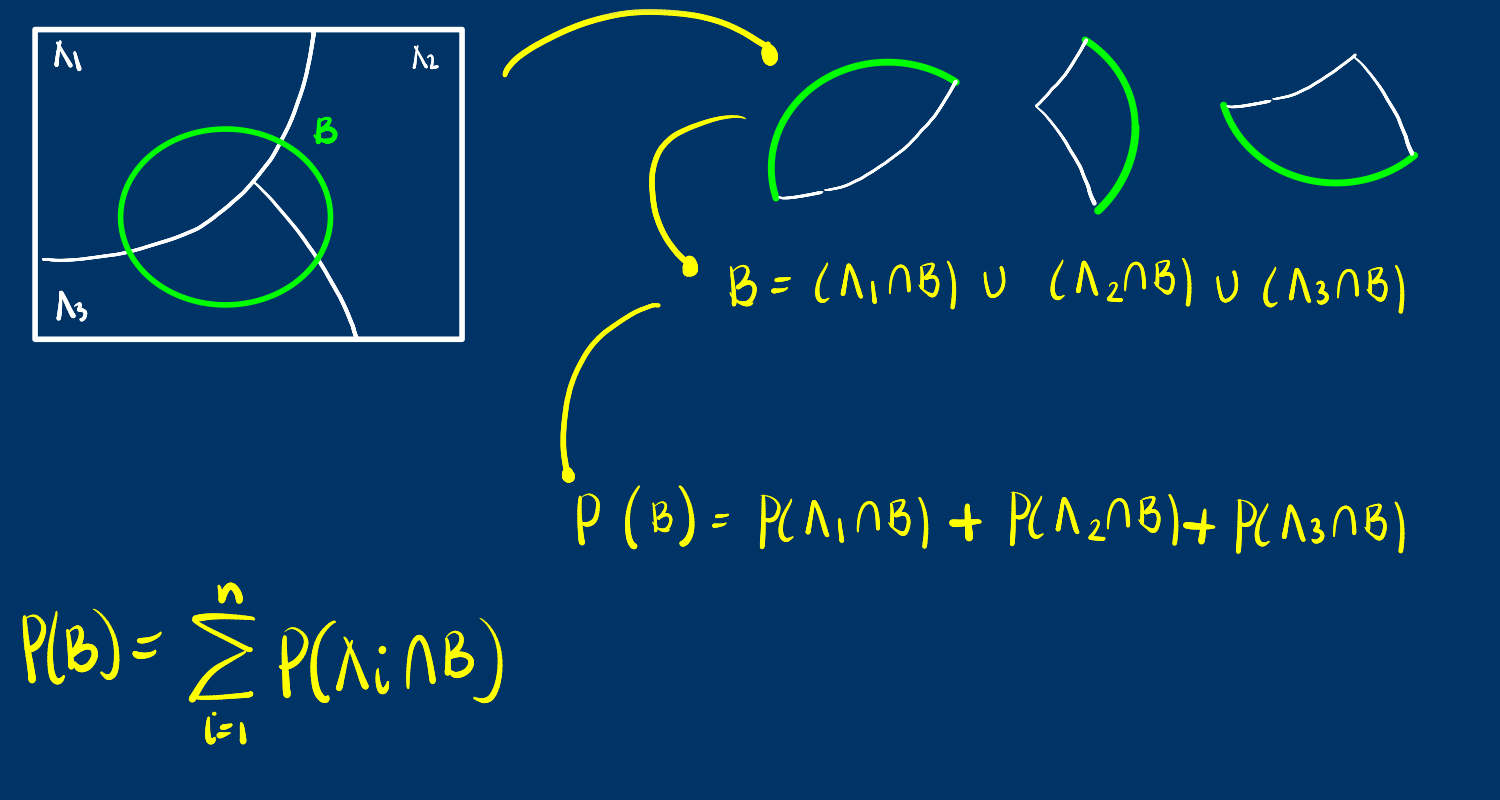 Λ1
Λ2
B
Λ3
B = (Λ1∩B) ∪ (Λ2∩B) ∪ (Λ3∩B)
P(B) = P(Λ1∩B) + P(Λ2∩B) + P(Λ3∩B)
P(B) = n∑i=1 P(λi∩B)